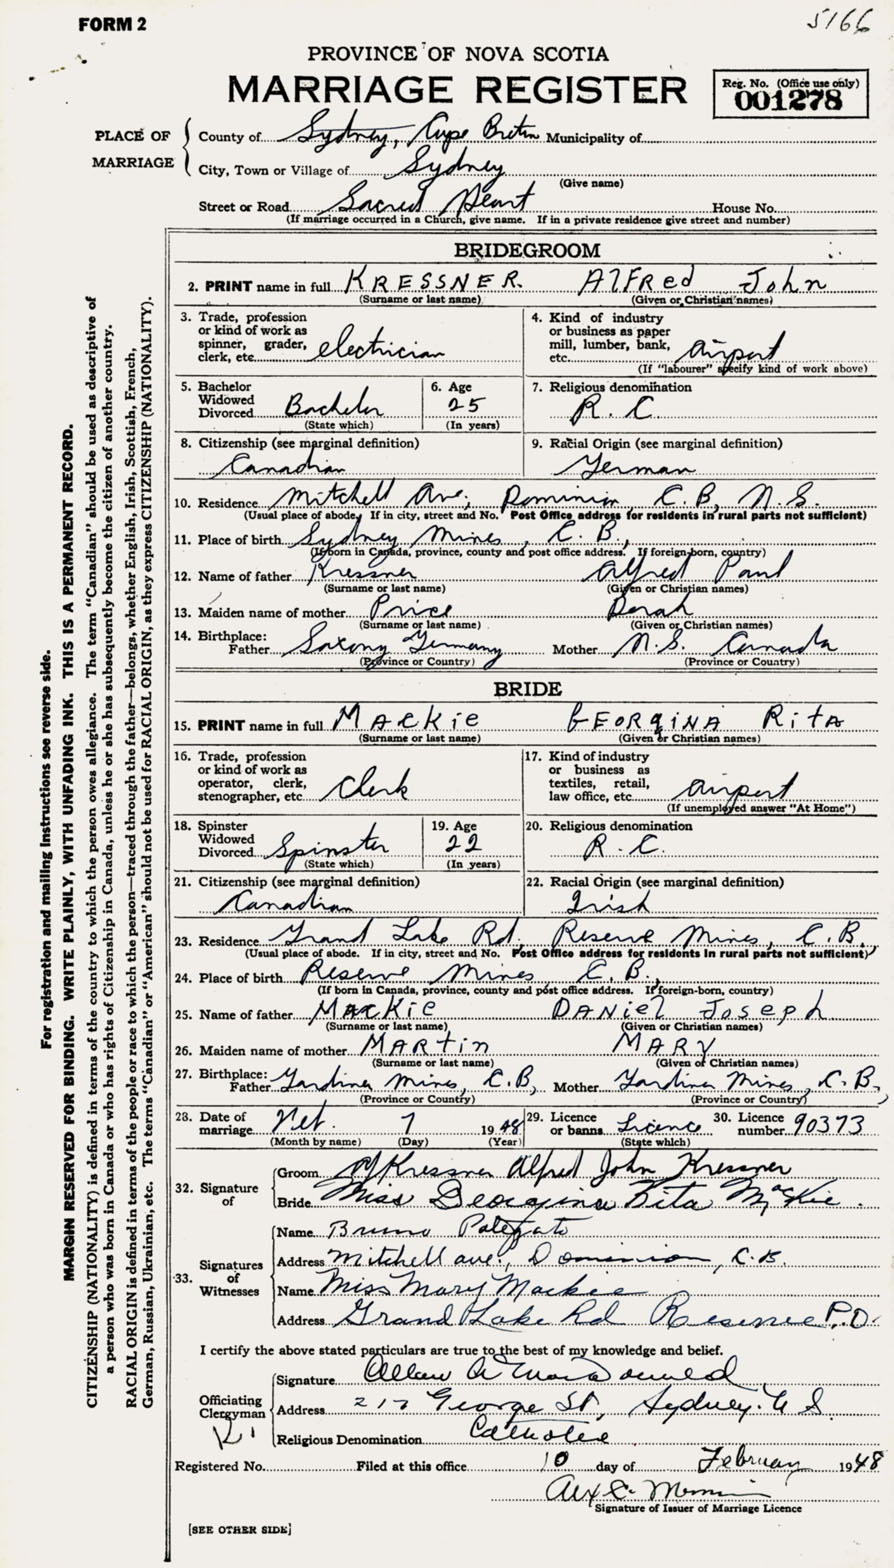 FORM 2
5166
PROVINCE OF NOVA SCOTIA
MARRIAGE REGISTER
Reg. No. (Office use only)
001278
PLACE OF MARRIAGE
County of Sydney, Cape Breton Municipality of
City, Town or Village of Sydney
(Give name)
Street or Road Sacred Heart House No.
(If marriage occurred in a Church, give name. If in a private residence give street and number)
BRIDEGROOM
2. PRINT name in full KRESSNER. Alfred John
(Surname or last name) (Given or Christian names)
3. Trade, profession or kind of work as spinner, grader, clerk, etc. electrician
4. Kind of industry or business as paper mill, lumber, bank, etc. Airport
(If "labourer" specify kind of work above)
5. Bachelor Widowed Divorced Bachelor
(State which)
6. Age 25
(In years)
7. Religious denomination R. C
8. Citizenship (see marginal definition) Canadian
9. Racial Origin (see marginal definition) German
10. Residence Mitchell Ave, Dominion, C. B, N. S.
(Usual place of abode. If in city, street and No. Post Office address for residents in rural parts not sufficient)
11. Place of birth Sydney Mines, C. B.,
(If born in Canada, province, county and post office address. If foreign-born, country)
12. Name of father Kressner Alfred Paul
(Surname or last name) (Given or Christian names)
13. Maiden name of mother Price
(Surname or last name) (Given or Christian names)
14. Birthplace:
Father Saxony Germany Mother N. S. Canada
(Province or Country) (Province or Country)
BRIDE
15. PRINT name in full Mackie GEORgINA RitA
(Surname or last name) (Given or Christian names)
16. Trade, profession or kind of work as operator, clerk, stenographer, etc. Clerk
17. Kind of industry or business as textiles, retail, law office, etc. Airport
(If unemployed answer "At Home")
18. Spinster Widowed Divorced Spinster
(State which)
19. Age 22
(In years)
20. Religious denomination R. C.
21. Citizenship (see marginal definition) Canadian
22. Racial Origin (see marginal definition) Irish
23. Residence Grand Lake Rd. Reserve Mines, C. B.
(Usual place of abode. If in city, street and No. Post Office address for residents in rural parts not sufficient)
24. Place of birth Reserve Mines C. B.
(If born in Canada, province, county and post office address. If foreign-born, country)
25. Name of father Mackie DANiel Joseph
(Surname or last name) (Given or Christian names)
26. Maiden name of mother MARtin MARY
(Surname or last name) (Given or Christian names)
27. Birthplace:
Father Gardiner Mines, C. B, Mother Gardiner Mines, C. B,
(Province or Country) (Province or Country)
28. Date of marriage 7 1948
(Month by name) (Day) (Year)
29. Licence or banns Licence
(State which)
30. Licence number 90373
32. Signature of
Groom Kressner Alfred John Kressner
Bride Miss Georgina Rita McKie.
33. Signatures of Witnesses
Name Bruno
Address Mitchell ave., Dominion, C. B.
Name Miss Mary Mackie
Address Grand Lake Rd Reserve P.O.
I certify the above stated particulars are true to the best of my knowledge and belief.
Officiating Clergyman
Signature Allan A MacDonald
Address 217 George St, Sydney. N S.
Religious Denomination Catholic
Registered No. Filed at this office 10 day of February 1948
Signature of Issuer of Marriage Licence
[SEE OTHER SIDE]
For registration and mailing instructions see reverse side.
MARGIN RESERVED FOR BINDING. WRITE PLAINLY, WITH UNFADING INK. THIS IS A PERMANENT RECORD.
CITIZENSHIP (NATIONALITY) is defined in terms of the country to which the person owes allegiance. The term "Canadian" should be used as descriptive of
a person who was born in Canada or who has rights of Citizenship in Canada, unless he or she has subsequently become the citizen of another country.
RACIAL ORIGIN is defined in terms of the people or race to which the person—traced through the father—belongs, whether English, Irish, Scottish, French,
German, Russian, Ukrainian, etc. The terms "Canadian" or "American" should not be used for RACIAL ORIGIN, as they express CITIZENSHIP (NATIONALITY).